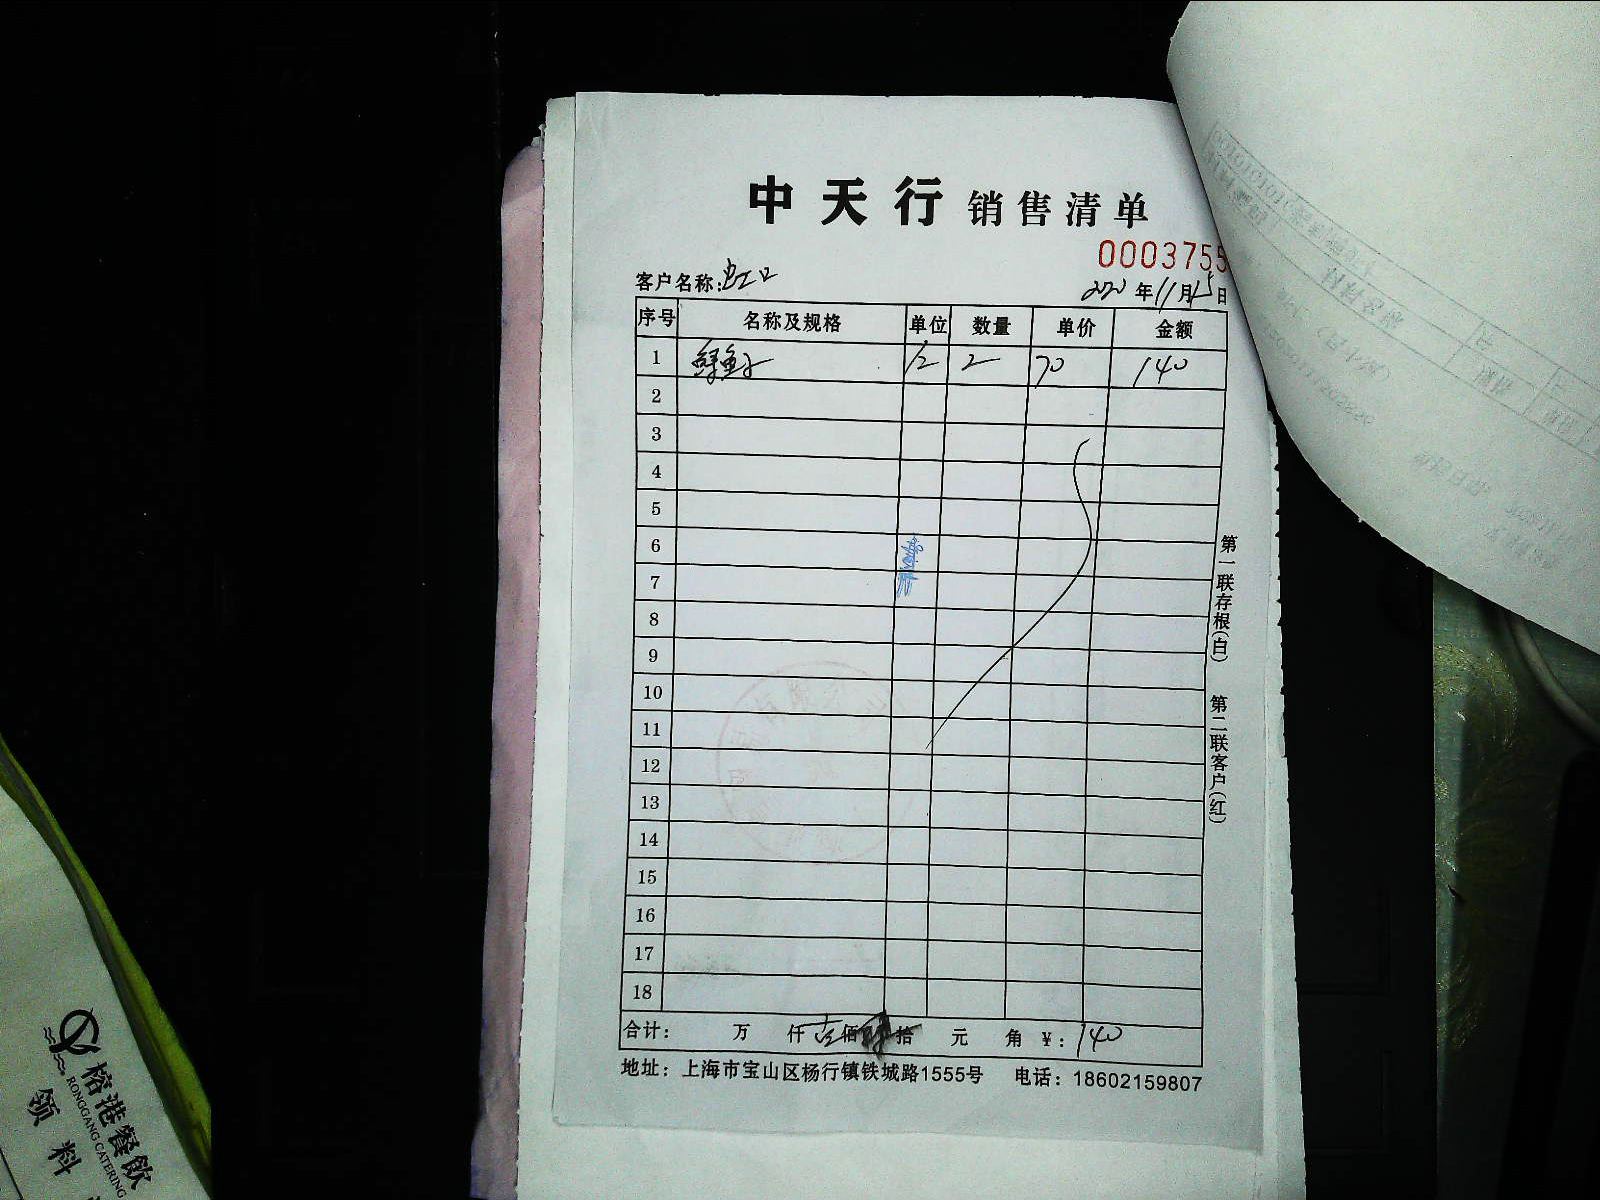 中天行 销售清单
0003755
客户名称:虹口 2020年11月15日
序号 名称及规格 单位 数量 单价 金额
1 2 70 140
2
3
4
5
6
7
8
9
10
11
12
13
14
15
16
17
18
合计: 万 仟 壹佰 拾 元 角 ¥:140
地址:上海市宝山区杨行镇铁城路1555号 电话:18602159807
第一联存根(白) 第二联客户(红)
榕港餐飲
RONGGANG CATERING
领料